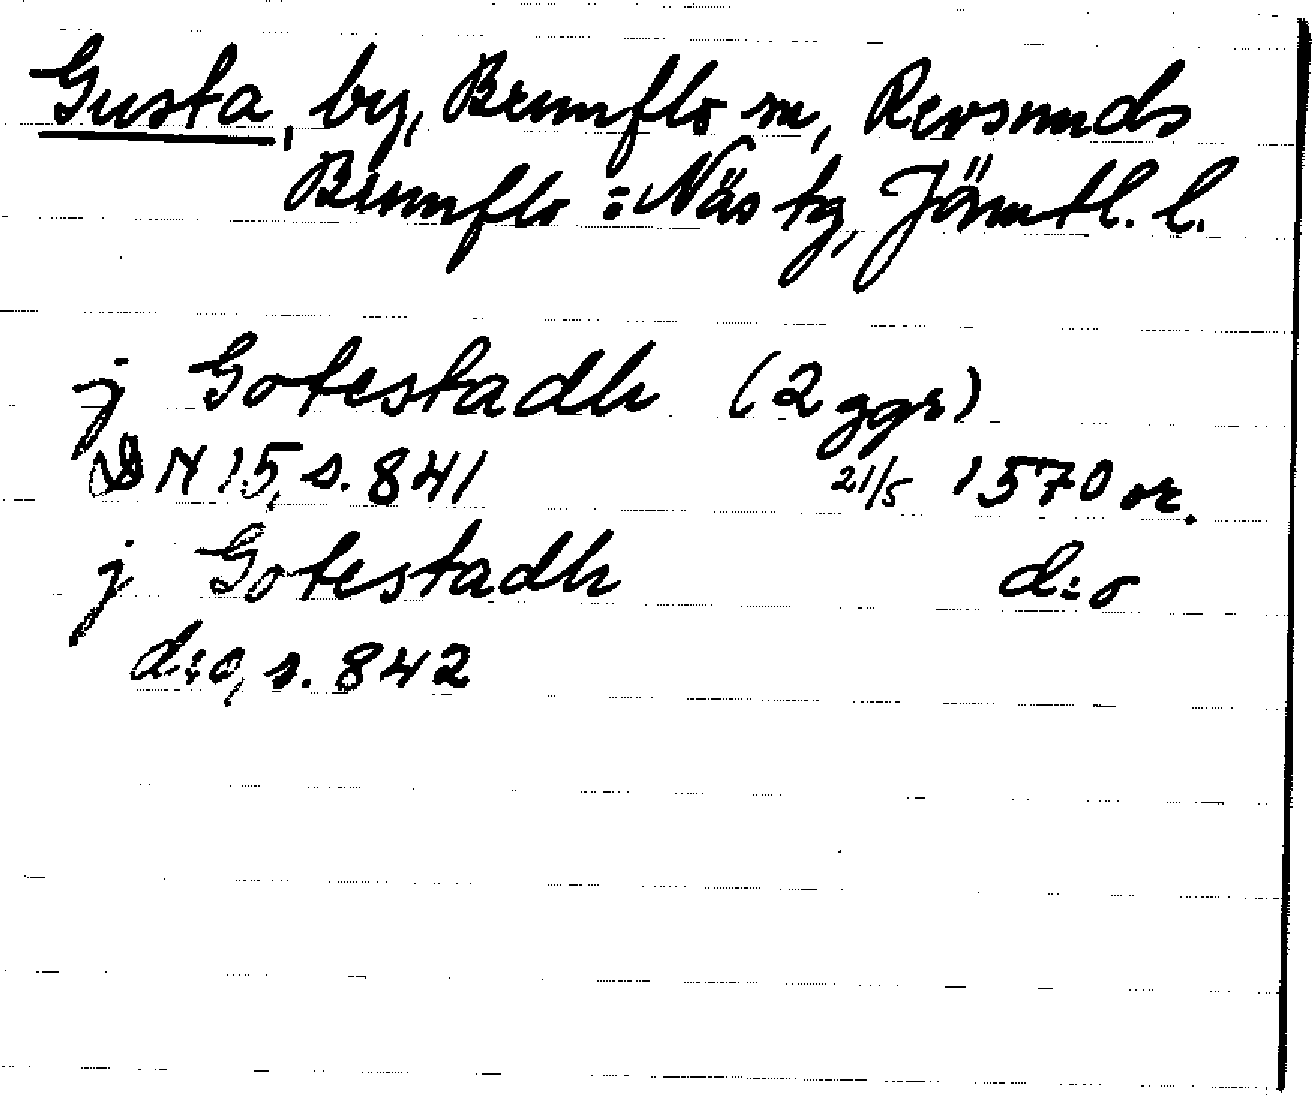 Gusta, by, Brunflo sn, Revsunds
Brunflo o Näs tg, Jämtl. l.
j Gotestadh (2 ggr)
DN 15, s. 841 21/5 1570 or.
j Gotestadh d:o
d:o, s. 842